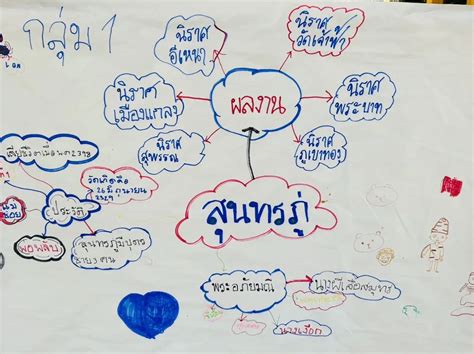 กลุ่ม 1
นิราศ
อิเหนา
นิราศ
วัดเจ้าฟ้า
นิราศ
เมืองแกลง
ผลงาน
นิราศ
พระบาท
นิราศ
สุพรรณ
นิราศ
ภูเขาทอง
สุนทรภู่
วันเกิดคือ
26 มิถุนายน
2329
ประวัติ
พ่อพลับ
แม่
ช้อย
สุนทรภู่มีบุตร
ชาย 3 คน
พระอภัยมณี
นางผีเสื้อสมุทร
นางเงือก